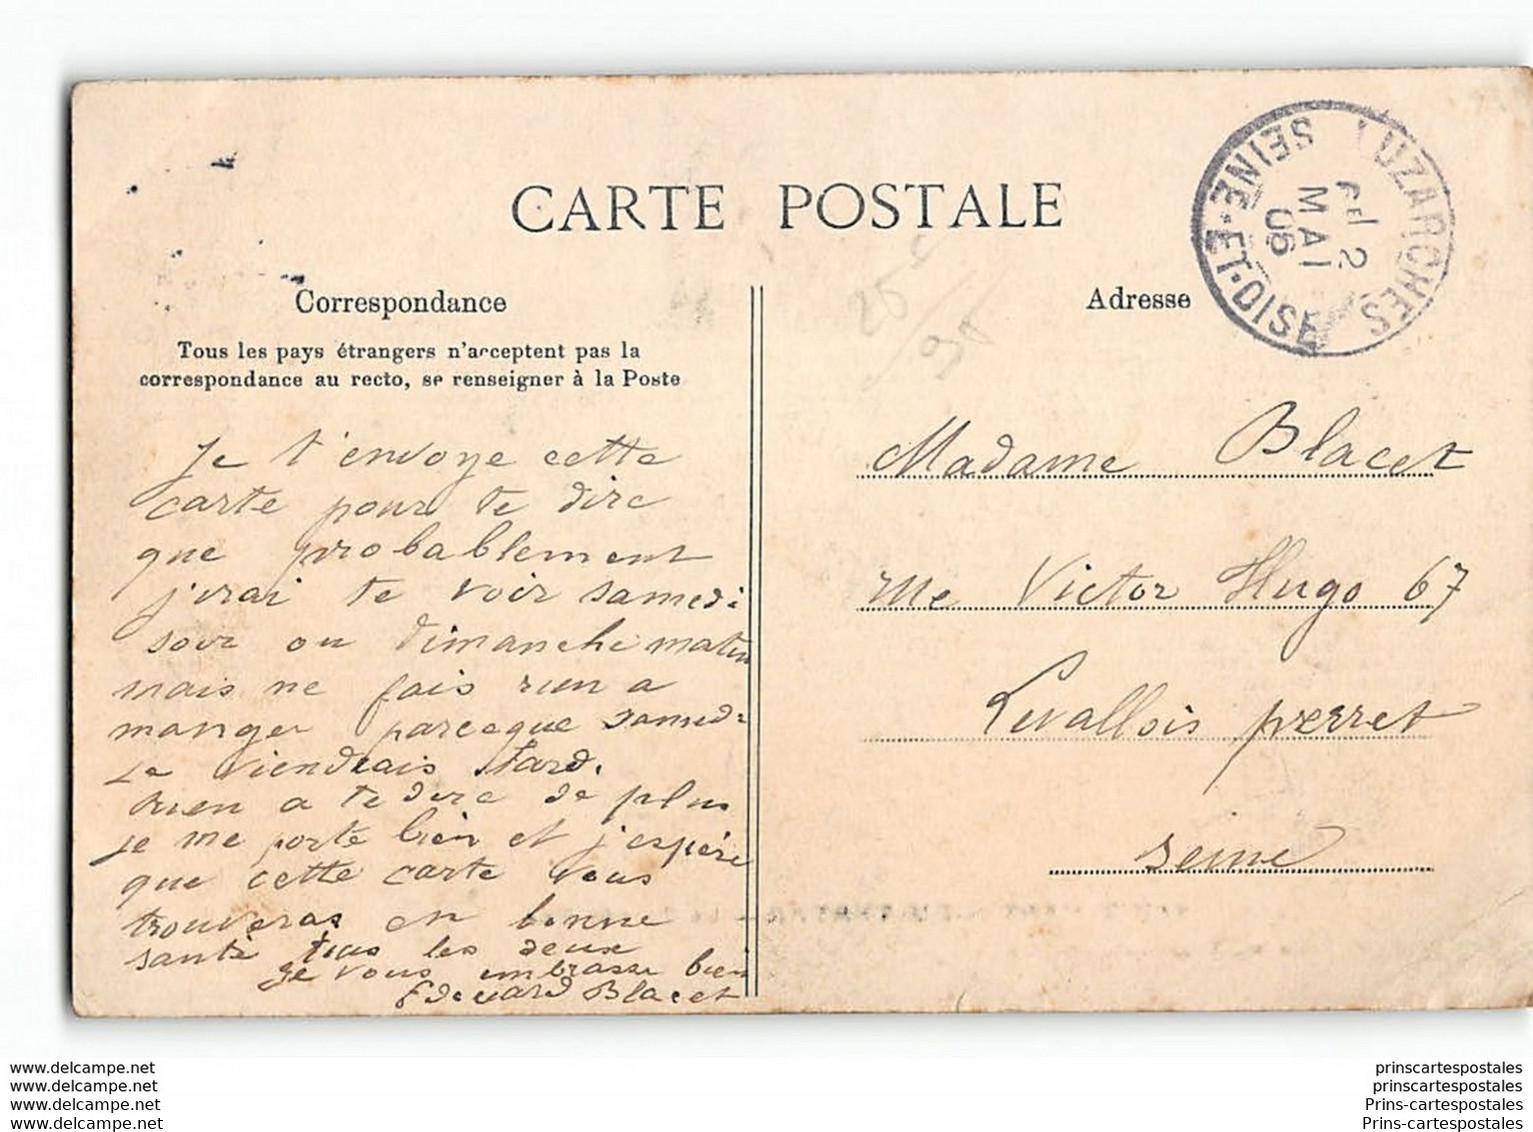 CARTE POSTALE
LUZARCHES
SEINE-ET-OISE
2
MAI
05
Correspondance
Tous les pays étrangers n'acceptent pas la
correspondance au recto, se renseigner à la Poste
Adresse
25
Je t'envoye cette
carte pour te dire
que probablement
j'irai te voir samedi
soir ou dimanche matin
mais ne fais rien a
manger parceque samedi
je viendrais tard.
rien a te dire de plus
je me porte bien et j'espére
que cette carte vous
trouveras en bonne
santé tous les deux
Je vous embrasse bien
Edouard Blacet
Madame Blacet
rue Victor Hugo 67
Levallois perret
seine
www.delcampe.net
www.delcampe.net
www.delcampe.net
www.delcampe.net
prinscartespostales
prinscartespostales
Prins-cartespostales
Prins-cartespostales